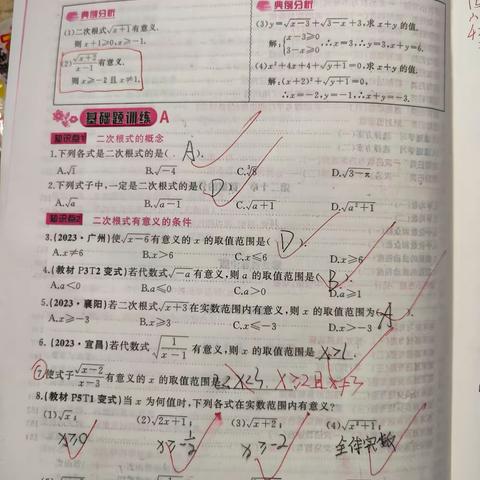 典例分析
(1)二次根式√x+1有意义.
则 x+1≥0,x≥-1.
(2)√x+2/x-1有意义.
则 x≥-2 且 x≠1.
典例分析
(3)y=√x-3+√3-x+3,求 x+y 的值.
解:{x-3≥0 3-x≥0,∴x=3,∴y=3,x+y=6.
(4)x²+4x+4+√y+1=0,求 x+y 的值.
解:(x+2)²+√y+1=0,
∴x=-2,y=-1,∴x+y=-3.
基础题训练 A
知识点1 二次根式的概念
1.下列各式是二次根式的是( A ).
A.√1 B.√-4 C.∛8 D.√3-π
2.下列式子中,一定是二次根式的是( D ).
A.√a B.√a-1 C.√a+1 D.√a²+1
知识点2 二次根式有意义的条件
3.(2023·广州)使√x-6有意义的 x 的取值范围是( D ).
A.x≠6 B.x>6 C.x≤6 D.x≥6
4.(教材 P3T2 变式)若代数式√-a有意义,则 a 的取值范围是( B ).
A.a<0 B.a≤0 C.a>0 D.a≥1
5.(2023·襄阳)若二次根式√x+3在实数范围内有意义,则 x 的取值范围为( A ).
A.x≥-3 B.x≥3 C.x≤-3 D.x>-3
6.(2023·宜昌)若代数式√1/x-1有意义,则 x 的取值范围是 x>1.
⑦使式子√x-2/x-3有意义的 x 的取值范围是 x≥2且x≠3
8.(教材 P5T1 变式)当 x 为何值时,下列各式在实数范围内有意义?
(1)√x; (2)√2x+1; (3)√x+2; (4)√x²+1;
x≥0 x≥-1/2 x≥-2 全体实数